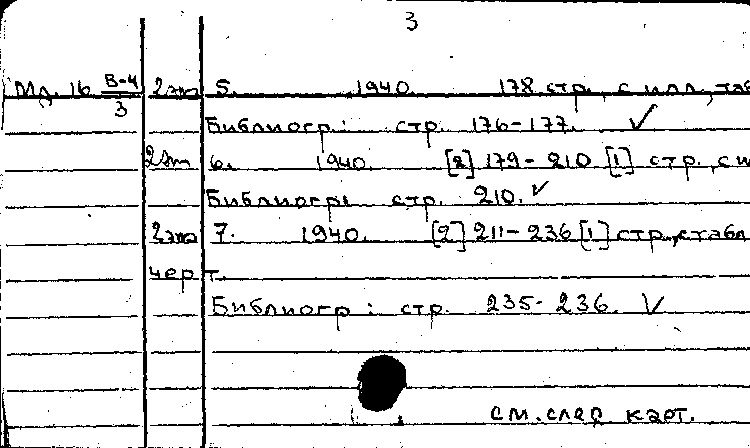 3
Мд. 16 В-4/3 2 экз 5. 1940. 178 стр., с илл., таб
Библиогр.: стр. 176-177. ✓
2 эк 6. 1940. [2] 179-210 [1] стр., с и
Библиогр: стр. 210. ✓
2 экз 7. 1940. [2] 211-236 [1] стр., с табл
черт.
Библиогр: стр. 235-236. ✓
см. след карт.